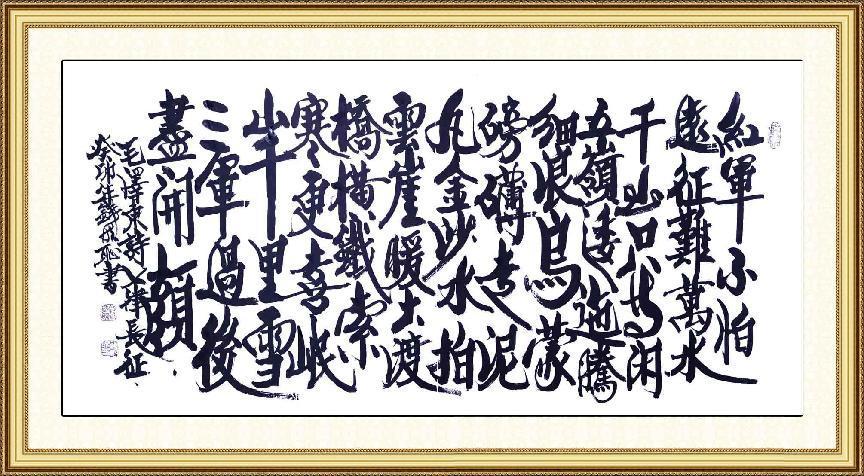 紅軍不怕
遠征難萬水
千山只等闲
五嶺逶迤騰
細浪烏蒙
磅礴走泥
丸金沙水拍
雲崖暖大渡
橋橫鐵索
寒更喜岷
山千里雪
三軍過後
盡開顏
毛澤東詩七律長征
癸卯 書